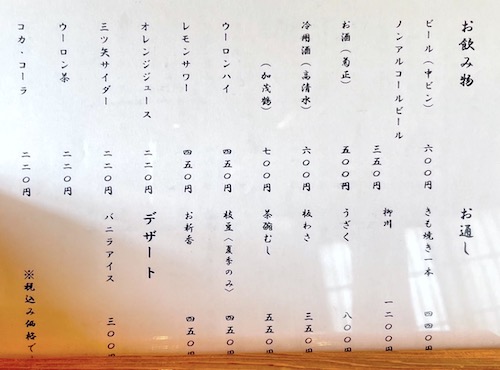 お飲み物
ビール（中ビン）　六〇〇円
ノンアルコールビール　三五〇円
お酒（菊正）　五〇〇円
冷用酒（高清水）　六〇〇円
（加茂鶴）　七〇〇円
ウーロンハイ　四五〇円
レモンサワー　四五〇円
オレンジジュース　二二〇円
三ツ矢サイダー　二二〇円
ウーロン茶　二二〇円
コカ・コーラ　二二〇円
お通し
きも焼き一本　四四〇円
柳川　一二〇〇円
うざく　八〇〇円
板わさ　三五〇円
茶碗むし　五五〇円
枝豆（夏季のみ）　四五〇円
お新香　四五〇円
デザート
バニラアイス　三〇〇円
※税込み価格で